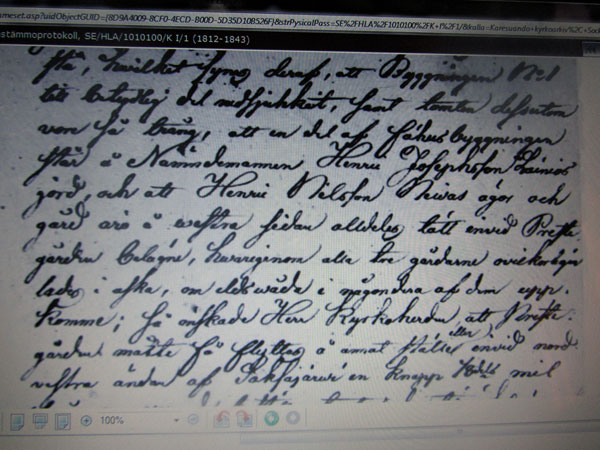 ameset.asp?uidObjectGUID={8D9A4009-8CF0-4ECD-800D-5D35D108526F}&strPysicalPass=SE%2FHLA%2F1010100%2FK I%2F1/&kalla=Karesuando+kyrkoarkiv%2C+Sock
stämmoprotokoll, SE/HLA/1010100/K I/1 (1812-1843)
stå, hvilket synes deraf, att Byggningen No 1
till betydlig del nedsjunkit, samt tomten dessutom
vore så trång, att en del af fähusbyggningen
står å Nämndemannen Henric Josephsson Lainios
jord, och att Henric Nilsson Neiwas ägor och
gård äro å westra sidan alldeles tätt envid Prest-
gården belägne, hvarigenom alla tre gårdarne ovilkorligen
lades i aska, om eldswåda i någondera af dem upp-
komme; så önskade Herr Kyrkoherden att Prest-
gården måtte få flyttas å annat ställe envid nord
eller
vestra ändan af Saksajärwi en knapp mil
100%